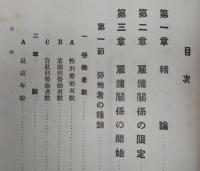 目次
第一章 緒論
第二章 雇傭關係の限定
第三章 雇傭關係の開始
第一節 勞働者の種類
一 勞働者數
A 性別勞働者數
B 業別勞働者數
C 官私別勞働者數
二 年齡
A 最高年齡
目次